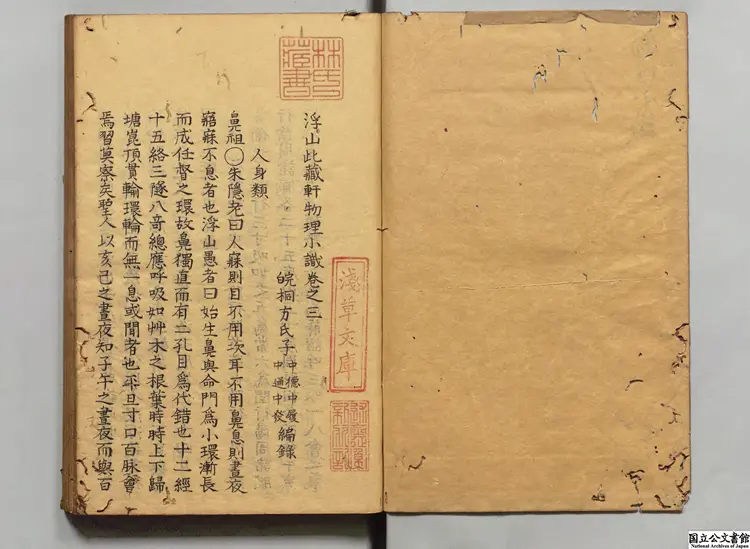 浮山此藏軒物理小識卷之三
皖桐方氏子中德中履中通中發編錄
人身類
鼻祖〇朱隱老曰人寐則目不用次耳不用鼻息則晝夜
寤寐不息者也浮山愚者曰始生鼻與命門爲小環漸長
而成任督之環故鼻獨直而有二孔目爲代錯也十二經
十五絡三隧八奇總應呼吸如艸木之根葉時時上下歸
塘崑頂貫輪環輪而無一息或閒者也平旦寸口百脉會
焉習莫察矣聖人以亥巳之晝夜知子午之晝夜而與百
林氏藏書
淺草文庫
国立公文書館
National Archives of Japan